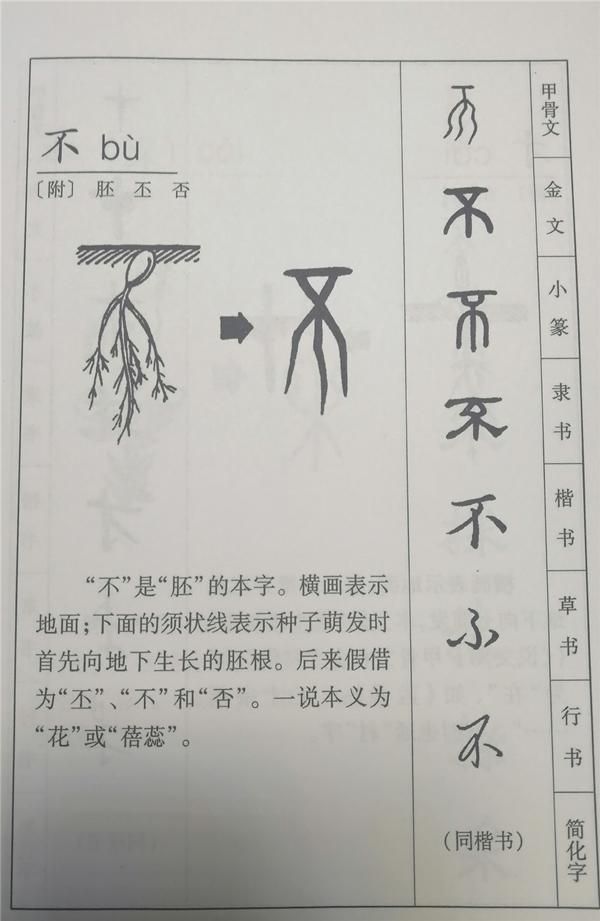 不 bù
〔附〕 胚 丕 否
“不”是“胚”的本字。横画表示
地面；下面的须状线表示种子萌发时
首先向地下生长的胚根。后来假借
为“丕”、“不”和“否”。一说本义为
“花”或“蓓蕊”。
不 甲骨文
不 金文
不 小篆
不 隶书
不 楷书
不 草书
不 行书
(同楷书) 简化字